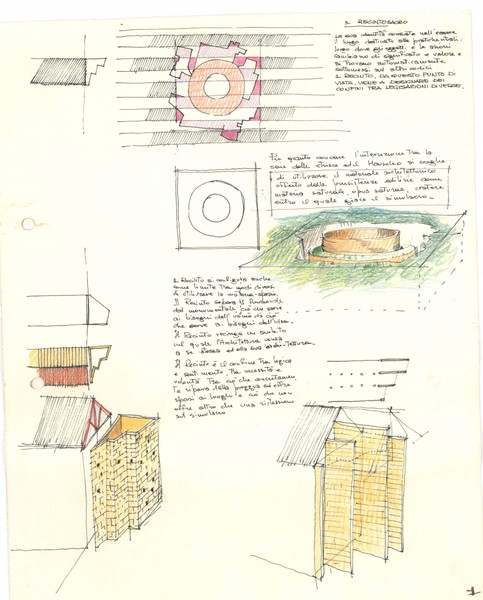 IL RECINTO SACRO
La sua identità consiste nell'essere
il luogo destinato alle pratiche rituali:
luogo dove gli oggetti e le azioni
cambiano di significato e valore e
si trovano automaticamente
sottomessi ad altri codici
IL RECINTO, DA QUESTO PUNTO DI
VISTA, VIENE A DESIGNARE DEI
CONFINI TRA LEGISLAZIONI DIVERSE.
Per quanto concerne l'interazione tra la
zona delle chiese ed il si sceglie
di utilizzare il materiale architettonico
offerto dalle edilizie come
materia naturale, opus naturae, cratere
entro il quale giace il simulacro.
Il Recinto si configura anche
come limite tra modi diversi
di utilizzare la materia-spazio.
Il Recinto separa il
dal monumentale, ciò che serve
ai bisogni dell'uomo da ciò
che serve ai bisogni dell'idea.
Il Recinto recinge un ambito
nel quale l'Architettura
a se stessa ed alla sua
Il Recinto è il confine tra logica
e sentimento, tra necessità e
volontà tra ciò che
la riparo dalla pioggia ed offre
spazi ai luoghi e ciò che non
offre altro che una riflessione
sul simulacro
1